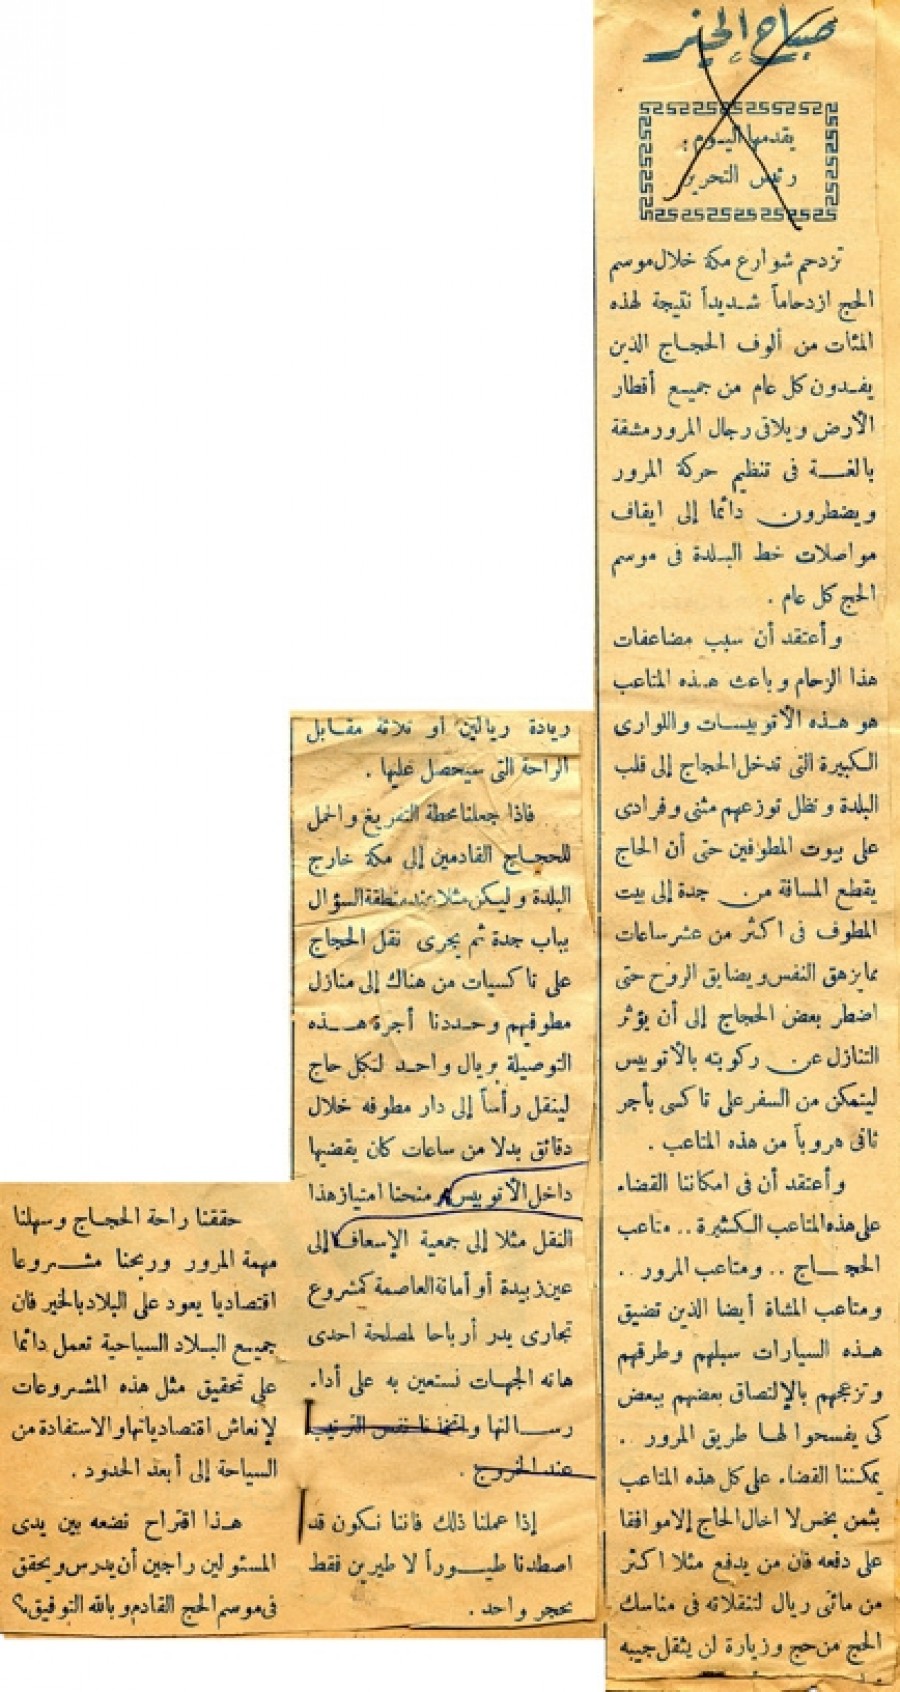 صباح الخير
يقدمها اليوم :
رئيس التحرير
تزدحم شوارع مكة خلال موسم
الحج ازدحاماً شديداً نتيجة لهذه
المئات من ألوف الحجاج الذين
يفدون كل عام من جميع أقطار
الأرض ويلاقى رجال المرور مشقة
بالغة فى تنظيم حركة المرور
ويضطرون دائما إلى ايقاف
مواصلات خط البلدة فى موسم
الحج كل عام .
وأعتقد أن سبب مضاعفات
هذا الزحام وباعث هذه المتاعب
هو هذه الأتوبيسات واللوارى
الكبيرة التى تدخل الحجاج إلى قلب
البلدة وتظل توزعهم مثنى وفرادى
على بيوت المطوفين حتى أن الحاج
يقطع المسافة من جدة إلى بيت
المطوف فى اكثر من عشر ساعات
مما يزهق النفس ويضايق الروح حتى
اضطر بعض الحجاج إلى أن يؤثر
التنازل عن ركوبته بالأتوبيس
ليتمكن من السفر على تاكسى بأجر
ثانى هروباً من هذه المتاعب .
وأعتقد أن فى امكاننا القضاء
على هذه المتاعب الكثيرة .. متاعب
الحجاج .. ومتاعب المرور ..
ومتاعب المشاة أيضا الذين تضيق
هذه السيارات سبلهم وطرقهم
وتزعجهم بالإلتصاق بعضهم ببعض
كى يفسحوا لها طريق المرور ..
يمكننا القضاء على كل هذه المتاعب
بثمن بخس لا اخال الحاج إلا موافقا
على دفعه فان من يدفع مثلا اكثر
من مائتى ريال لتنقلاته فى مناسك
الحج من حج وزيارة لن يثقل جيبه
زيادة ريالين أو ثلاثة مقابل
الراحة التى سيحصل عليها .
فاذا جعلنا محطة التفريغ والحمل
للحجاج القادمين إلى مكة خارج
البلدة وليكن مثلا عند منطقة السؤال
بباب جدة ثم يجرى نقل الحجاج
على تاكسيات من هناك إلى منازل
مطوفيهم وحددنا أجرة هذه
التوصيلة بريال واحد لكل حاج
لينقل رأساً إلى دار مطوفه خلال
دقائق بدلا من ساعات كان يقضيها
داخل الأتوبيس منحنا امتياز هذا
النقل مثلا إلى جمعية الإسعاف إلى
عين زبيدة أو أمانة العاصمة كمشروع
تجارى يدر أرباحا لمصلحة احدى
هاته الجهات نستعين به على أداء
رسالتها واتخذنا نفس الترتيب
عند الخروج .
إذا عملنا ذلك فاننا نكون قد
اصطدنا طيوراً لا طيرين فقط
بحجر واحد .
حققنا راحة الحجاج وسهلنا
مهمة المرور وربحنا مشروعا
اقتصاديا يعود على البلاد بالخير فان
جميع البلاد السياحية تعمل دائما
على تحقيق مثل هذه المشروعات
لإنعاش اقتصادياتها والاستفادة من
السياحة إلى أبعد الحدود .
هذا اقتراح نضعه بين يدى
المسئولين راجين أن يدرس ويحقق
فى موسم الحج القادم وبالله التوفيق؟